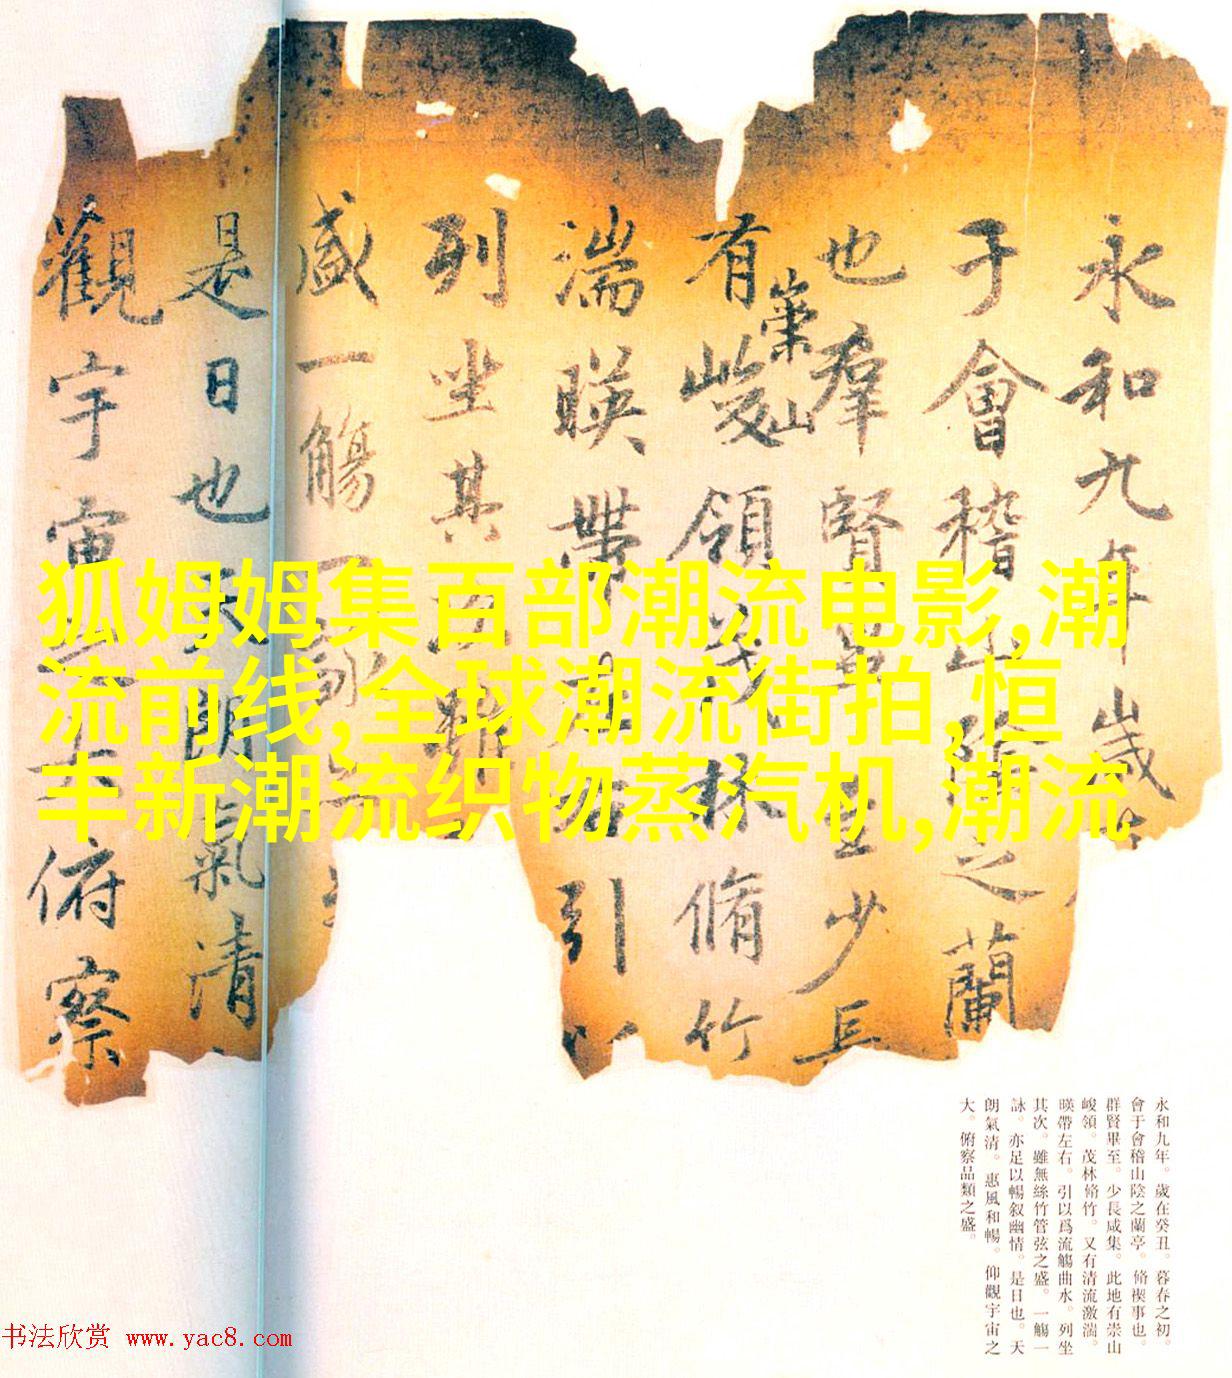 永和九年歲
于會稽山陰之蘭
也羣賢畢至少長
有崇山峻領茂林脩竹
湍暎帶左右引以
列坐其次雖
盛一觴一詠亦
是日也天朗氣清
觀宇宙之大俯察
狐姆姆集百部潮流电影,潮
流前线,全球潮流街拍,恒
丰新潮流织物蒸汽机,潮流
永和九年。歲在癸丑。暮春之初。
會于會稽山陰之蘭亭。脩禊事也。
群賢畢至。少長咸集。此地有崇山
峻領。茂林脩竹。又有清流激湍。
暎帶左右。引以爲流觴曲水。列坐
其次。雖無絲竹管弦之盛。一觴一
詠。亦足以暢叙幽情。是日也。天
朗氣清。惠風和暢。仰觀宇宙之
大。俯察品類之盛。
书法欣赏 www.yac8.com